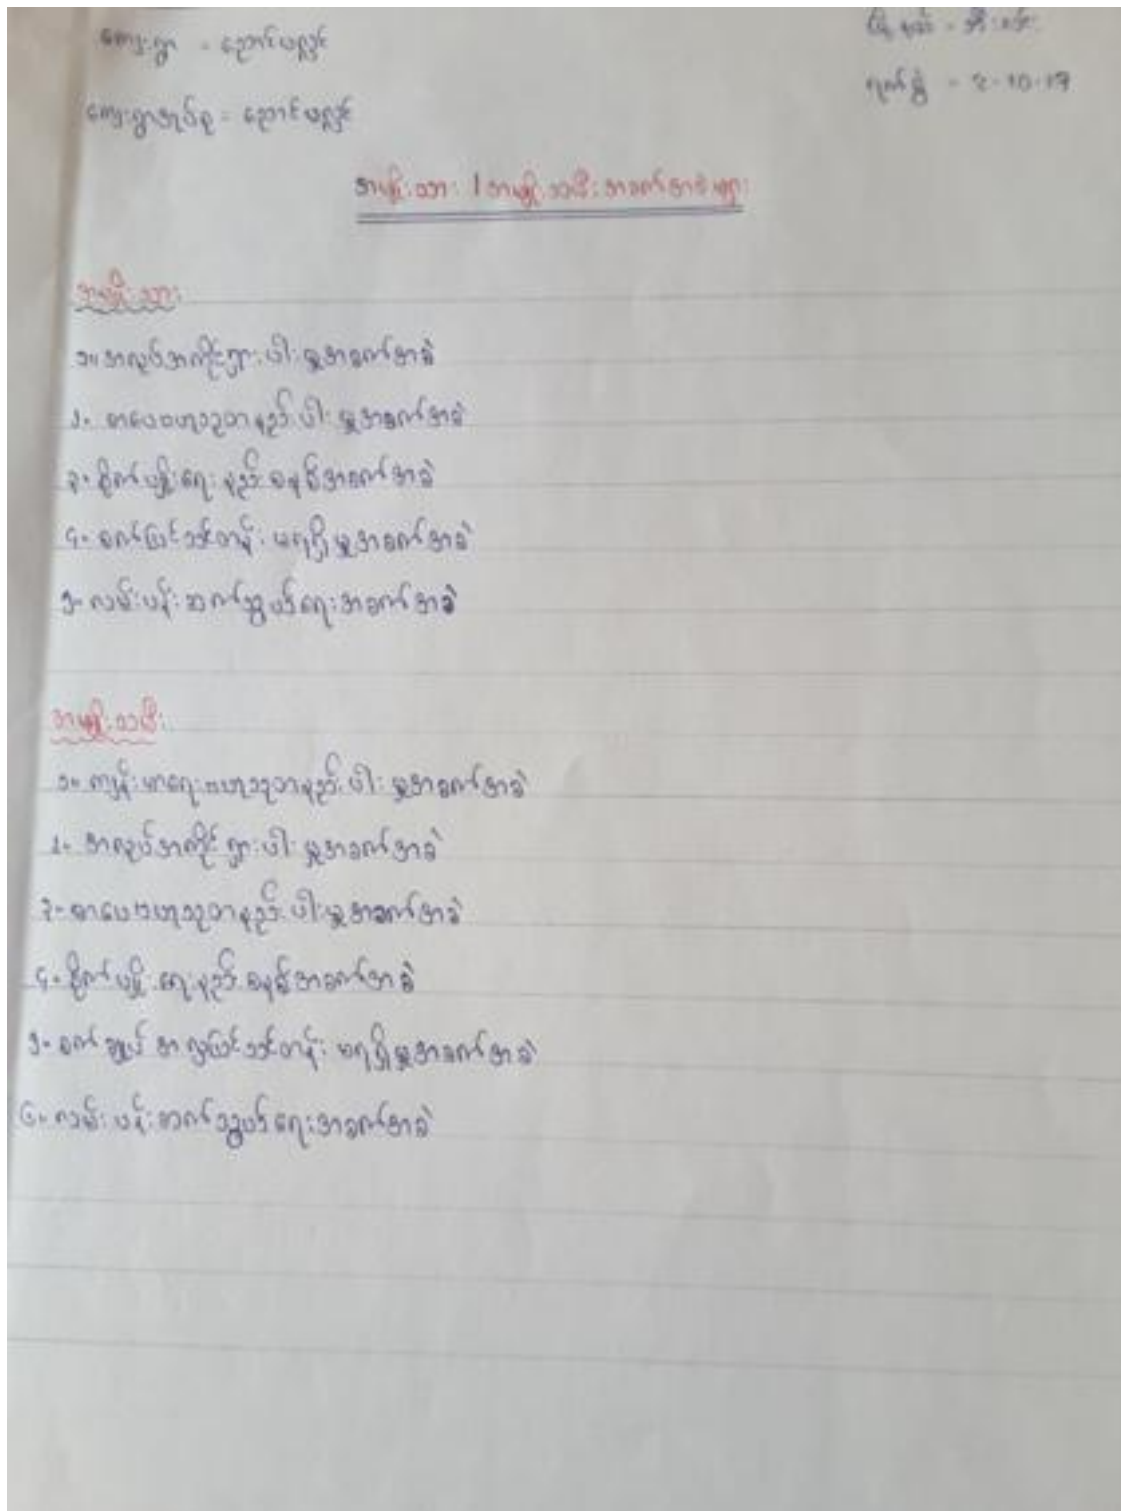 ကျေးရွာ - ညောင်ပလ္လင်
မြို့နယ် - ဘီးလင်း
ကျေးရွာအုပ်စု - ညောင်ပလ္လင်
ရက်စွဲ - 2-10-17
အမျိုးသား / အမျိုးသမီး အခက်အခဲများ
အမျိုးသား
၁။ အလုပ်အကိုင်ရှားပါးမှုအခက်အခဲ
၂။ စာပေဗဟုသုတနည်းပါးမှုအခက်အခဲ
၃။ စိုက်ပျိုးရေးနည်းစနစ်အခက်အခဲ
၄။ စက်ပြင်သင်တန်းမရရှိမှုအခက်အခဲ
၅။ လမ်းပန်းဆက်သွယ်ရေးအခက်အခဲ
အမျိုးသမီး
၁။ ကျန်းမာရေးဗဟုသုတနည်းပါးမှုအခက်အခဲ
၂။ အလုပ်အကိုင်ရှားပါးမှုအခက်အခဲ
၃။ စာပေဗဟုသုတနည်းပါးမှုအခက်အခဲ
၄။ စိုက်ပျိုးရေးနည်းစနစ်အခက်အခဲ
၅။ စက်ချုပ် အလှပြင်သင်တန်း မရရှိမှုအခက်အခဲ
၆။ လမ်းပန်းဆက်သွယ်ရေးအခက်အခဲ